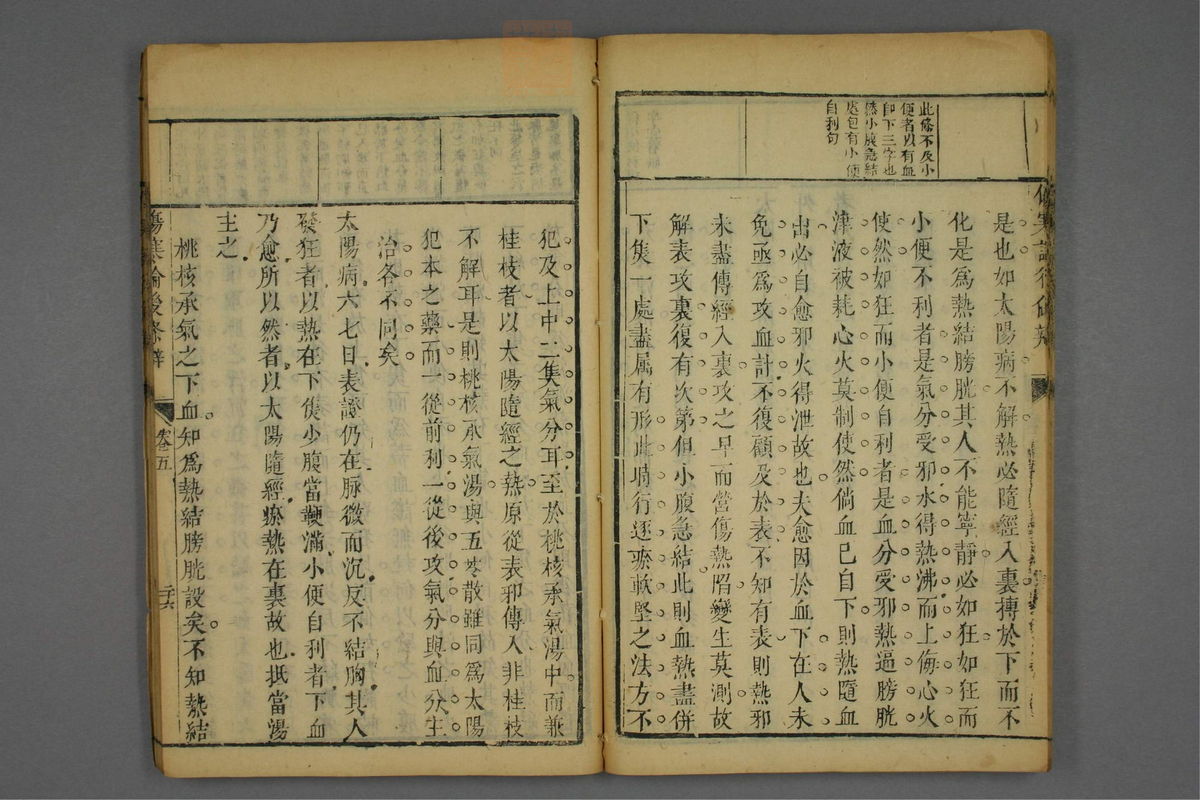 此條不及小
便者以有血
自下三字也
然小腹急結
處包有小便
自利句
是也如太陽病不解熱必隨經入裏搏於下而不
化是為熱結膀胱其人不能寧靜必如狂如狂而
小便不利者是氣分受邪水得熱沸而上侮心火
使然如狂而小便自利者是血分受邪熱逼膀胱
津液被耗心火莫制使然倘血已自下則熱隨血
出必自愈邪火得泄故也夫愈因於血下在人未
免亟為攻血計不復顧及於表不知有表則熱邪
未盡傳經入裏攻之早而營傷熱陷變生莫測故
解表攻裏復有次第但小腹急結此則血熱盡併
下集一處盡屬有形此時行逐瘀軟堅之法方不
犯及上中二集氣分耳至於桃核承氣湯中而兼
桂枝者以太陽隨經之熱原從表邪傳入非桂枝
不解耳是則桃核承氣湯與五苓散雖同為太陽
犯本之藥而一從前利一從後攻氣分與血分主
治各不同矣
太陽病六七日表證仍在脉微而沉反不結胸其人
發狂者以熱在下焦少腹當鞕滿小便自利者下血
乃愈所以然者以太陽隨經瘀熱在裏故也抵當湯
主之
桃核承氣之下血知為熱結膀胱設矣不知熱結
傷寒論後條辨
卷五
二六